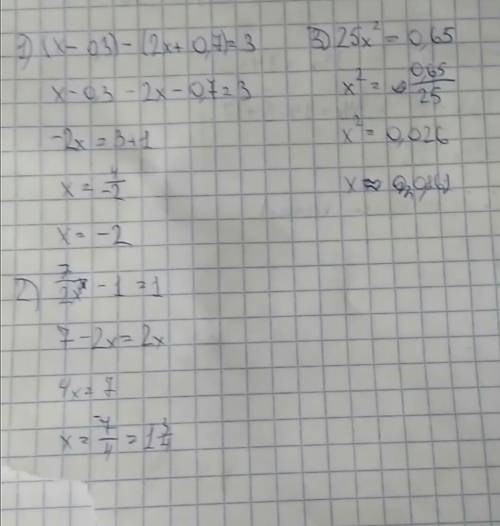 1) (x-0,3)-(2x+0,7)=3
x-0,3-2x-0,7=3
-2x=3+1
x=4/-2
x=-2
2) 7/2x-1=1
7-2x=2x
4x=7
x=7/4=1 3/4
3) 25x²=0,65
x²=0,65/25
x²=0,026
x≈